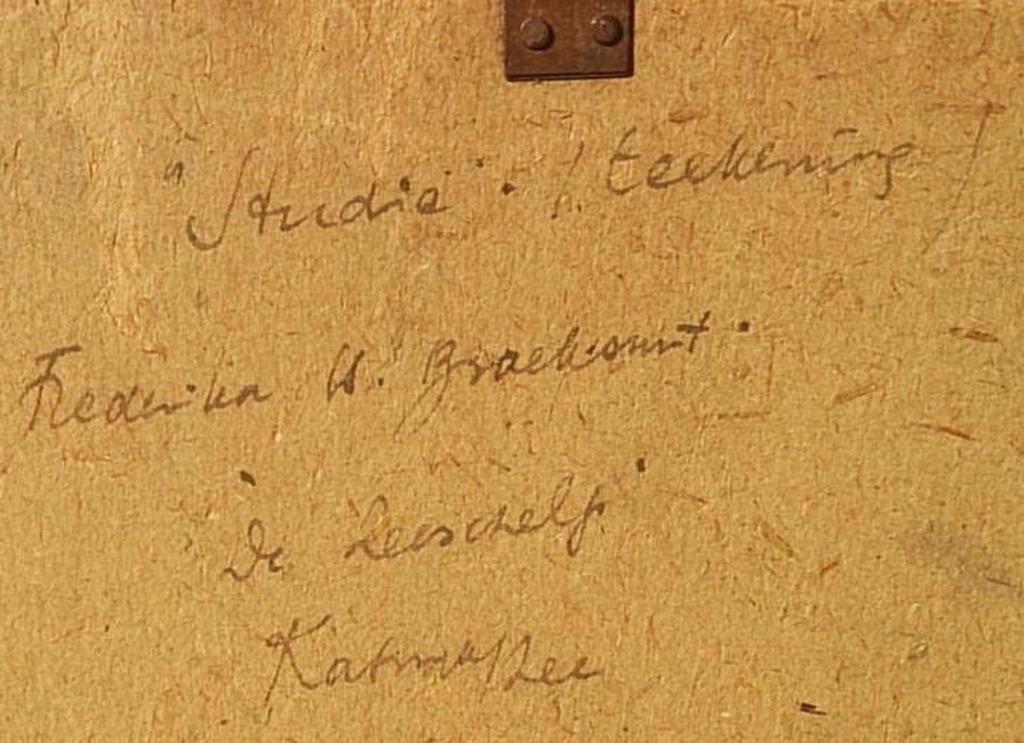 "Studie". (teekening)
Frederika H. Broeksmit.
"De Zeeschelp"
Katwijk a/Zee